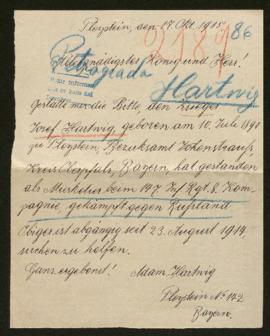 Pleystein, den 17 Okt. 1915.
86
2189
Allergnädigster König und Herr!
Petrograda
Hartwig
gestatte mir die Bitte den Krieger
Josef Hartwig geboren am 10. Juli 1891
zu Pleystein, Bezirksamt Vohenstrauß
Kreis Oberpfalz, Bayern, hat gestanden
als Musketier beim 147. Inf. Rgt. 8. Kom-
pagnie, gekämpft gegen Rußland
Obiger ist abgängig seit 23. August 1914,
suchen zu helfen.
Ganz ergebenst! Adam Hartwig
Pleystein No 142
Bayern.